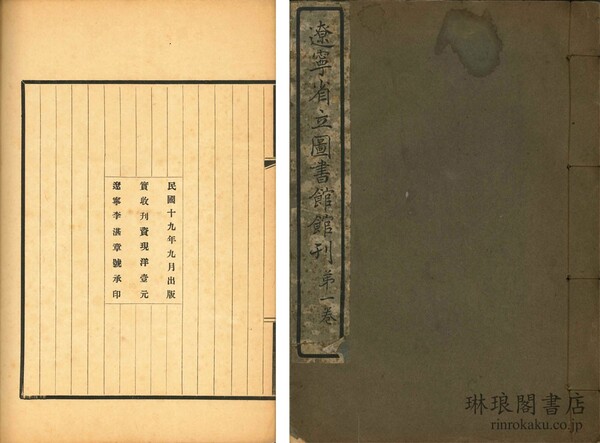 民國十九年九月出版
實收刊資現洋壹元
遼寧李湛章號承印
遼寧省立圖書館館刊 弟一卷
琳琅閣書店
rinrokaku.co.jp